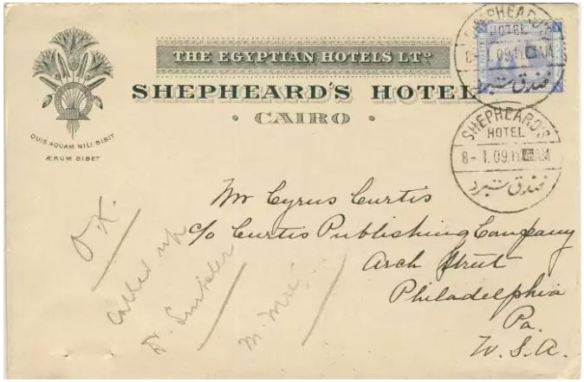 THE EGYPTIAN HOTELS LTD.
SHEPHEARD'S HOTEL
• CAIRO •
QUIS AQUAM NILI BIBIT
ÆRUM BIBET
SHEPHEARD'S
HOTEL
8-1.09.11
فندق شبرد
SHEPHEARD'S
HOTEL
8-1.09.11
فندق شبرد
Mr Cyrus Curtis
c/o Curtis Publishing Company
Arch Street
Philadelphia
Pa.
U.S.A.
O.K.
Called up
Dr.
M.